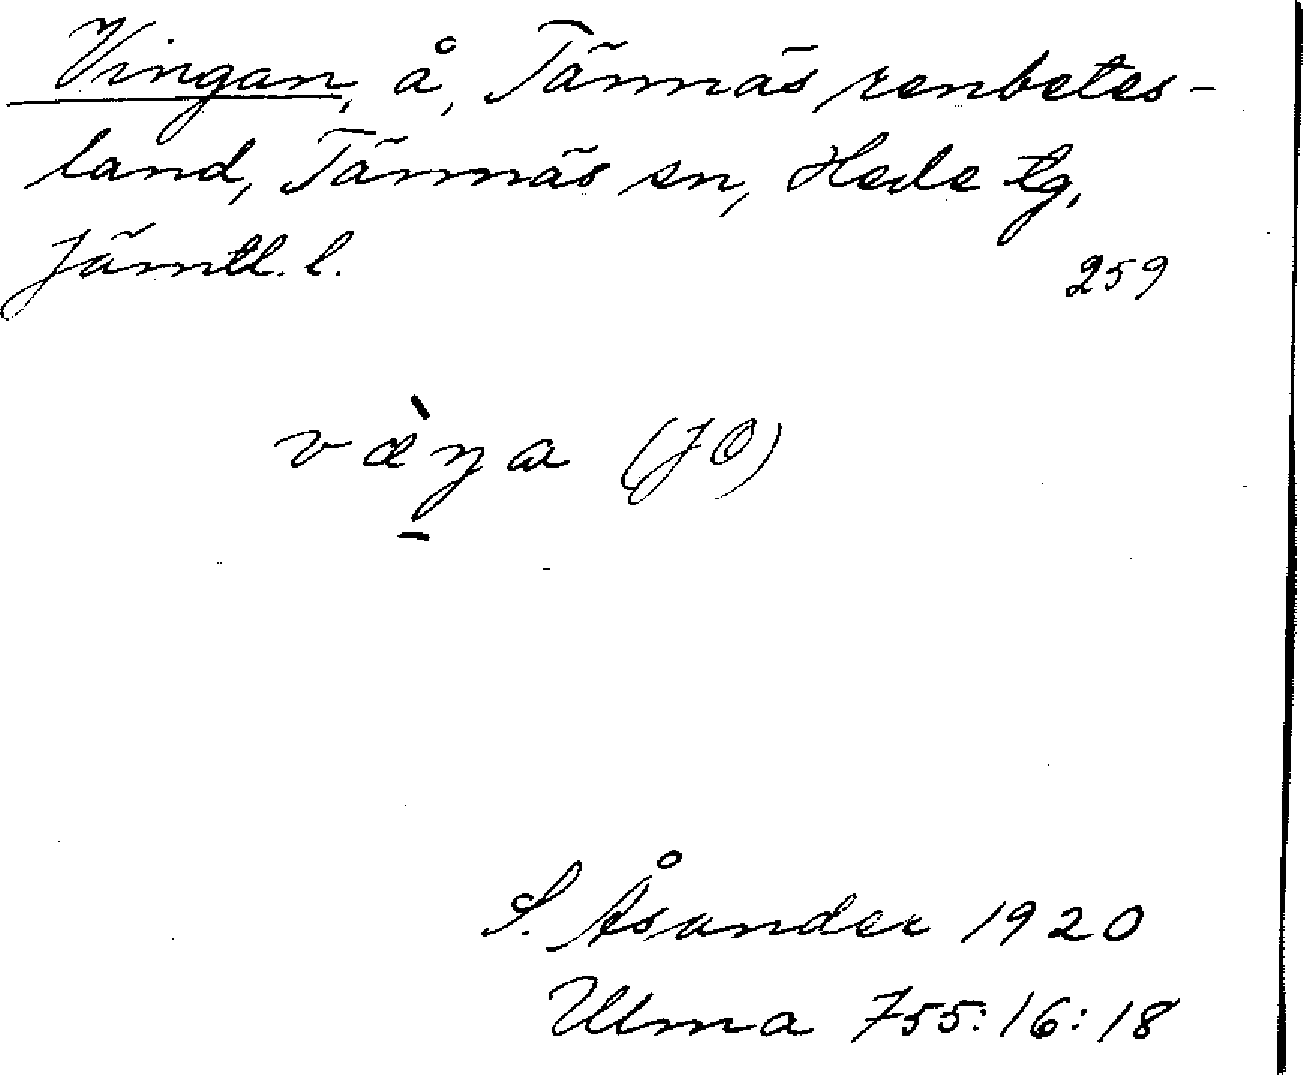 Vingan, å, Tännäs renbetes-
land, Tännäs sn, Hede tg,
Jämtl. l.
259
væ̀ŋa (JÖ)
S. Åsander 1920
Ulma 755:16:18